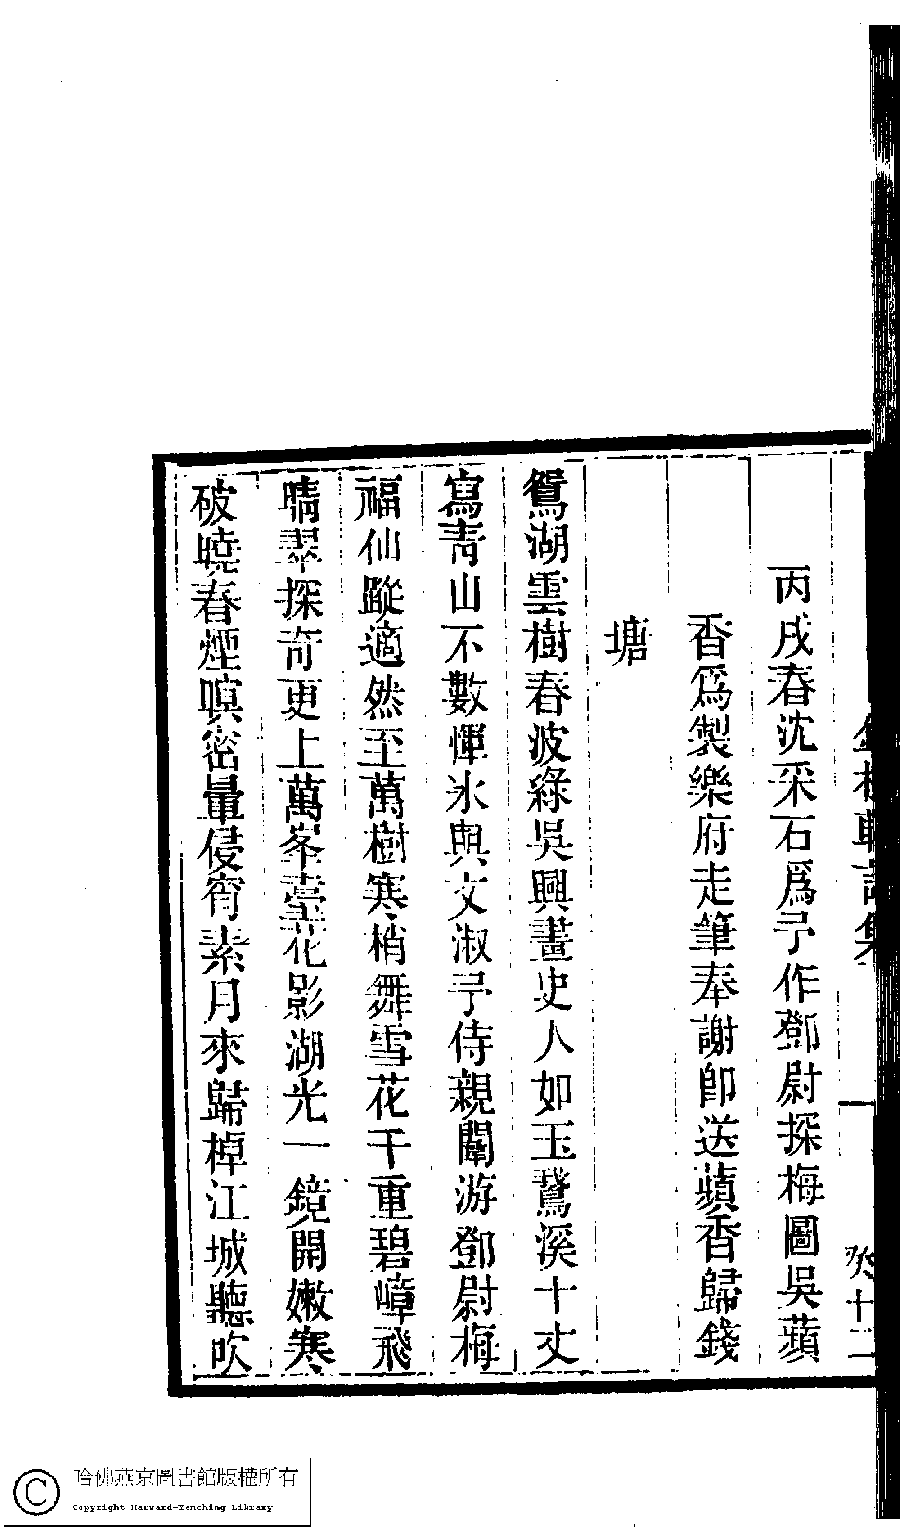 丙戌春沈采石爲予作鄧尉探梅圖吳蘋
香爲製樂府走筆奉謝卽送蘋香歸錢
塘
鴛湖雲樹春波綠吳興畫史人如玉鵞溪十丈
寫靑山不數惲冰與文淑予侍親闈游鄧尉梅
福仙蹤適然至萬樹寒梢舞雪花千重碧嶂飛
晴翠探奇更上萬峯臺花影湖光一鏡開嫩寒
破曉春煙暝密暈侵宵素月來歸棹江城聽吹
十二
哈佛燕京圖書館版權所有
Copyright Harvard-Yenching Library